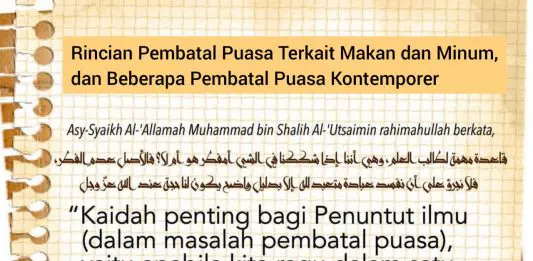 Rincian Pembatal Puasa Terkait Makan dan Minum,
dan Beberapa Pembatal Puasa Kontemporer
Asy-Syaikh Al-'Allamah Muhammad bin Shalih Al-'Utsaimin rahimahullah berkata,
قاعدة مهمة لطالب العلم، وهي أننا إذا شككنا في الشيء أمفطر هو أم لا؟ فالأصل عدم الفطر،
فلا نجرؤ على أن نفسد عبادة متعبد لله إلا بدليل واضح يكون لنا حجة عند الله عز وجل
"Kaidah penting bagi Penuntut ilmu
(dalam masalah pembatal puasa),
yaitu apabila kita ragu dalam satu